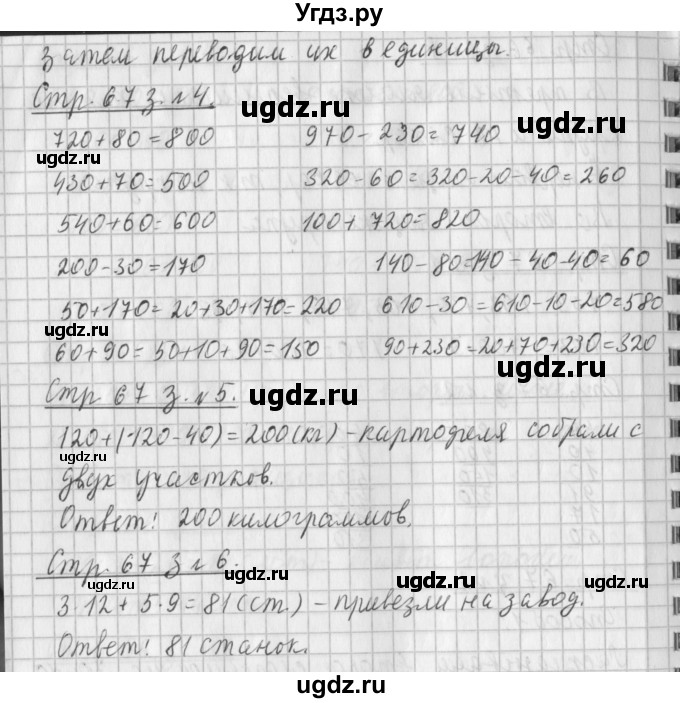 Угдз.ру
затем переводим их в единицы.
Стр. 67 з. №4.
ugdz.ru
ugdz.ru
720+80=800 970-230=740
ugdz.ru
430+70=500 320-60=320-20-40=260
540+60=600 100+720=820
200-30=170 140-80=140-40-40=60
ugdz.ru
50+170=20+30+170=220 610-30=610-10-20=580
ugdz.ru
60+90=50+10+90=150 90+230=20+70+230=320
ugdz.ru
Стр 67 з. №5.
ugdz.ru
120+(120-40)=200(кг)-картофеля собрали с
ugdz.ru
двух участков.
ugdz.ru
Ответ: 200 килограммов.
Стр. 67 з №6.
ugdz.ru
ugdz.ru
ugdz.ru
3·12+5·9=81(ст.)-привезли на завод.
Ответ: 81 станок.
ugdz.ru
ugdz.ru
ugdz.ru